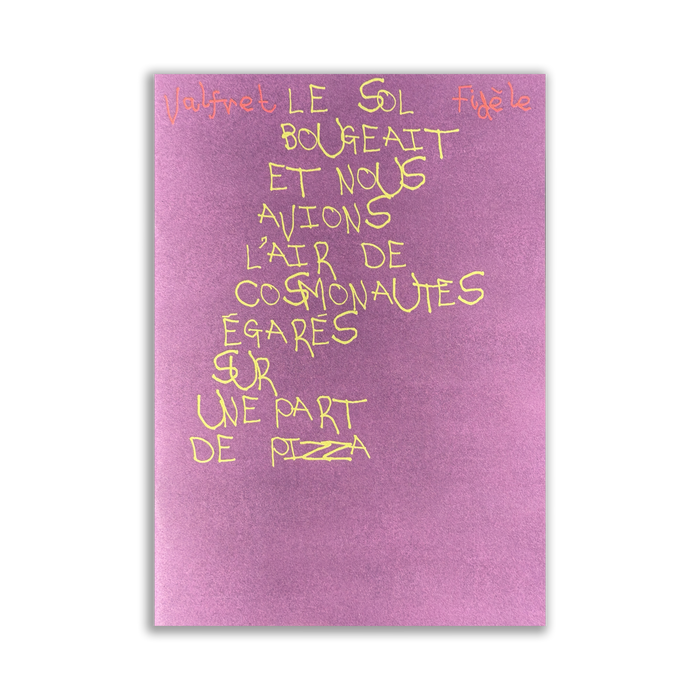 Valfret LE SOL Fidèle
BOUGEAIT
ET NOUS
AVIONS
L'AIR DE
COSMONAUTES
ÉGARÉS
SUR
UNE PART
DE PIZZA